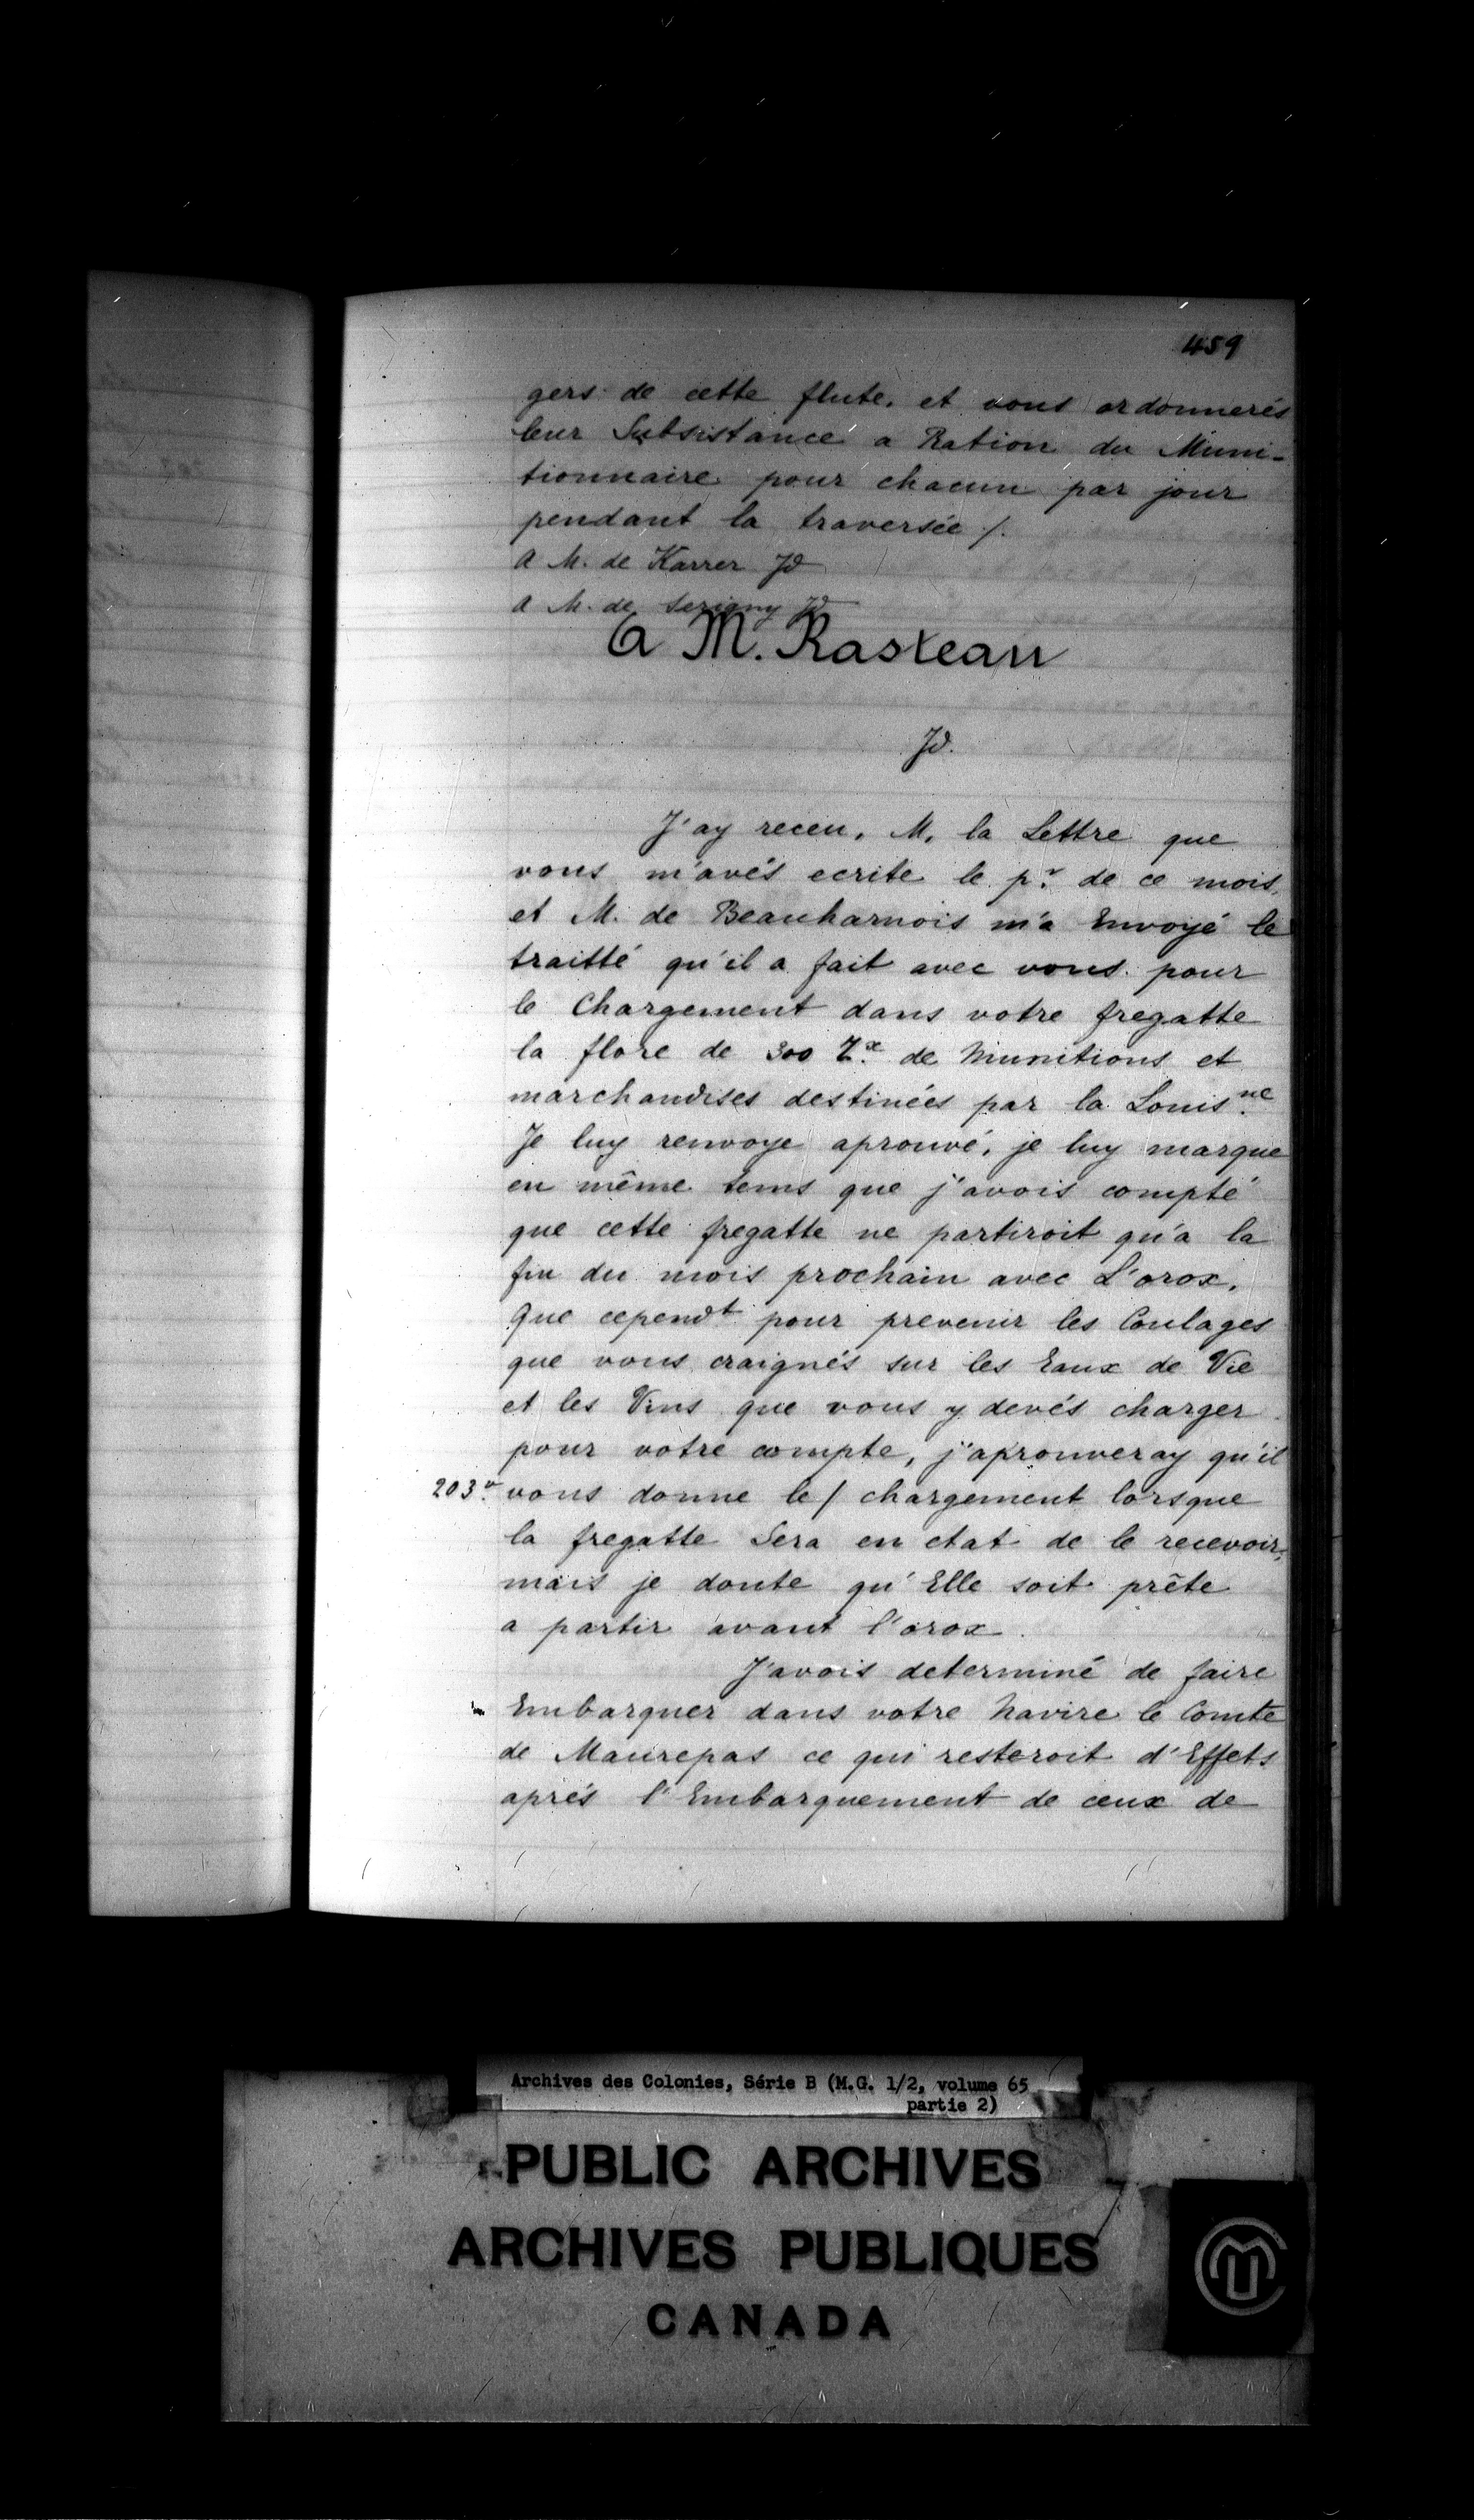 459
gers de cette flute. et vous ordonnerés
leur Subsistance a Ration du Muni-
tionnaire pour chacun par jour
pendant la traversée /.
A M. de Karrer Jd
A M. de Serigny Jd
A M. Rasteau
Jd.
J'ay receu, M, la Lettre que
vous m'avés ecrite le pr. de ce mois,
et M. de Beauharnois m'a Envoyé le
traitté qu'il a fait avec vous pour
le Chargement dans votre fregatte
la flore de 300 Tx. de Munitions et
marchandises destinées par la Louisne.
Je luy renvoye aprouvé, je luy marque
en même tems que j'avois compté
que cette fregatte ne partiroit qu'a la
fin du mois prochain avec L'orox,
Que cependt pour prevenir les Coulages
que vous craignés sur les Eaux de Vie
et les Vins que vous y devés charger
pour votre compte, j'aprouveray qu'il
203v. vous donne le / chargement lorsque
la fregatte Sera en etat de le recevoir,
mais je doute qu'Elle soit prête
a partir avant l'orox.
J'avois determiné de faire
Embarquer dans votre Navire le Comte
de Maurepas ce qui resteroit d'Effets
aprés l'Embarquement de ceux de
Archives des Colonies, Série B (M.G. 1/2, volume 65
partie 2)
PUBLIC ARCHIVES
ARCHIVES PUBLIQUES
CANADA